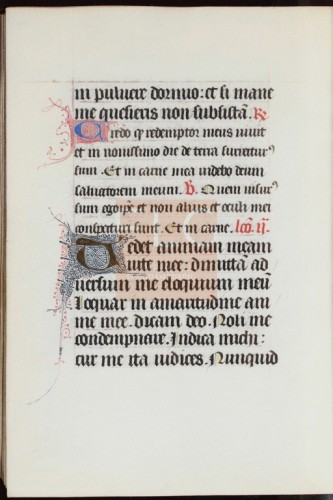 in puluere dormio: et si mane
me quesieris non subsistā. R̄.
Credo q̄ redemptor meus uiuit
et in nouissimo die de terra surrecturꝰ
sum. Et in carne mea uidebo deum
saluatorem meum. V̄. Quem uisurꝰ
sum ego ip̄e et non alius et oculi mei
conspecturi sunt. Et in carne. lcō. ij.
Tedet animam meam
uite mee: dimittā ad
uersum me eloquium meū
loquar in amaritudine ani
me mee. dicam deo. Noli me
condempnare. Indica michi:
cur me ita iudices. Nunquid